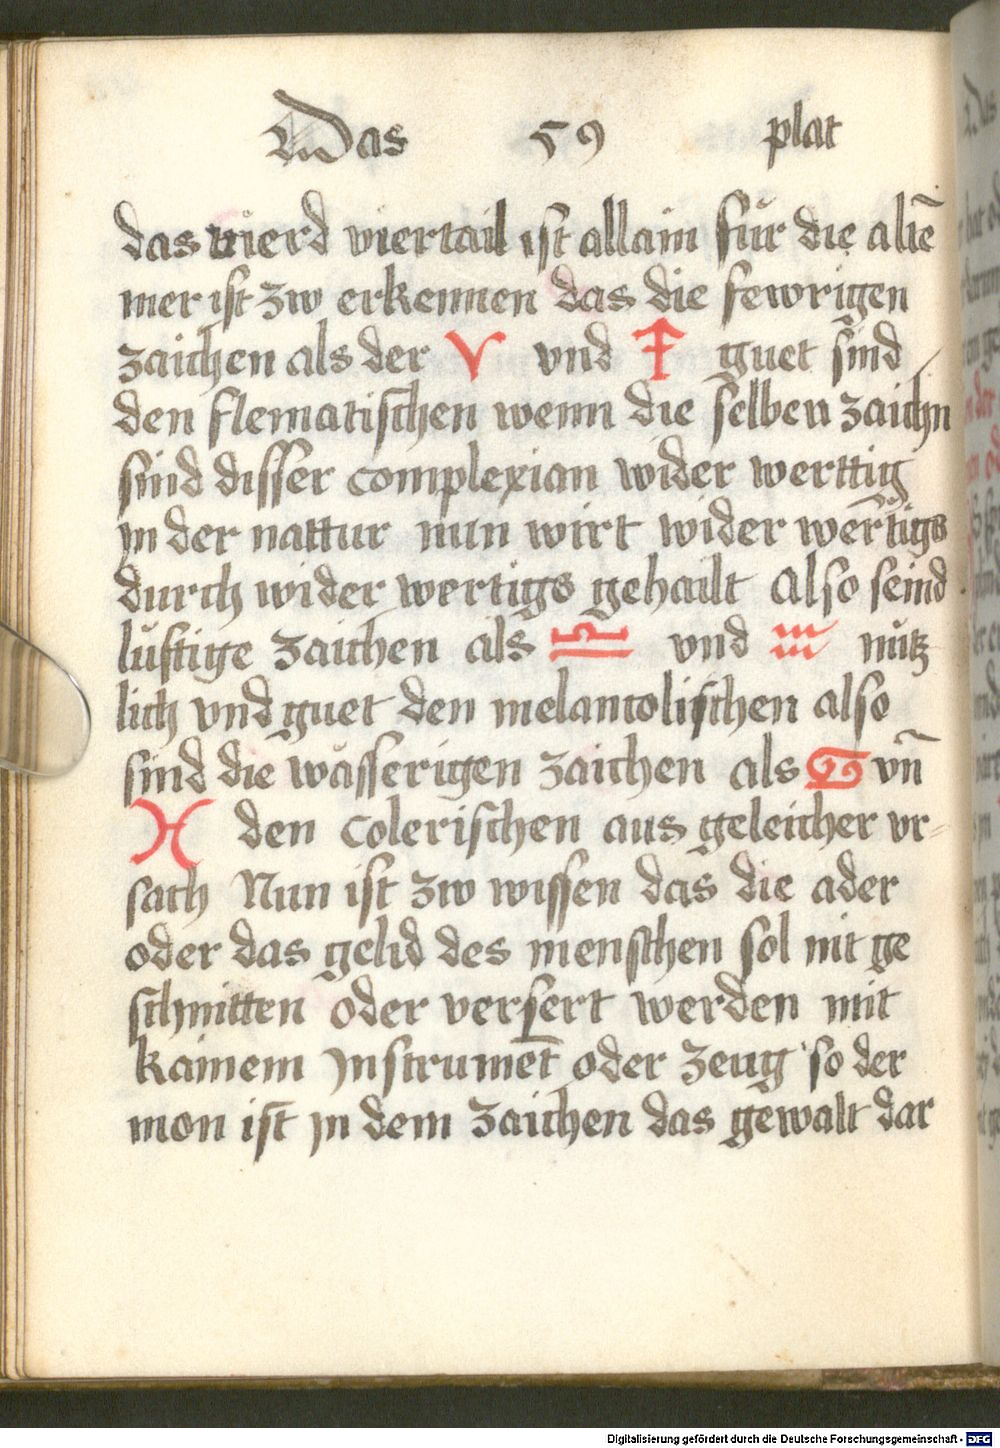 Das 59 plat
das vierd viertail ist allain fůr die altē
mer ist zw erkennen das die fewrigen
zaichen als der ♈ vnd ♐ guet sind
den flematischen wenn die selben zaichn
sind disser complexian wider werttig
yn der nattur nun wirt wider wertigs
durch wider wertigs gehailt also seind
lůftige zaichen als ♎ vnd ♒ nůtz
lich vnd guet den melancolischen also
sind die wåsserigen zaichen als ♋ vn̄
♓ den colerischen aus geleicher vr-
sach Nun ist zw wissen das die ader
oder das gelid des menschen sol nit ge
schnitten oder versert werden mit
kainem ynstrumēt oder zeug so der
mon ist yn dem zaichen das gewalt dar
Digitalisierung gefördert durch die Deutsche Forschungsgemeinschaft - DFG